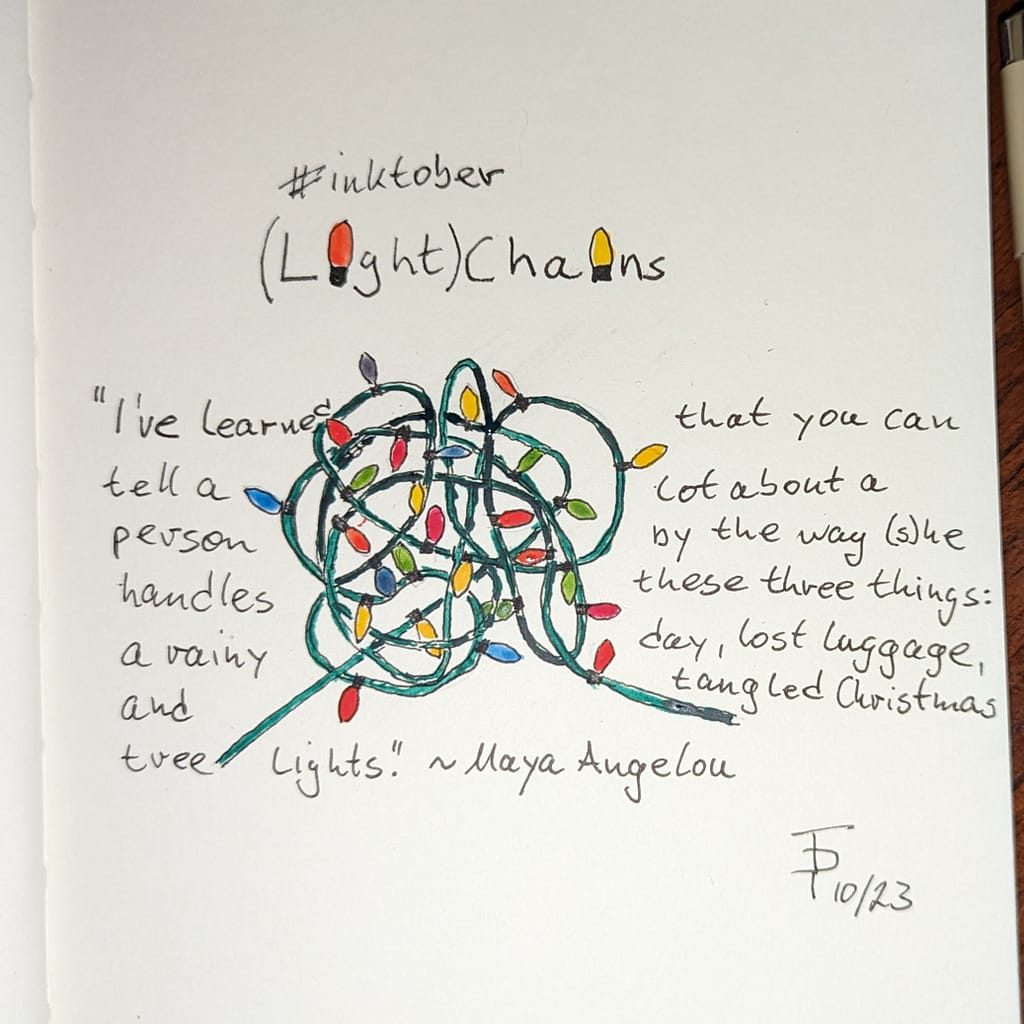 #inktober
(Light)Chains
"I've learned that you can
tell a lot about a
person by the way (s)he
handles these three things:
a rainy day, lost luggage,
and tangled Christmas
tree lights." ~ Maya Angelou
10/23